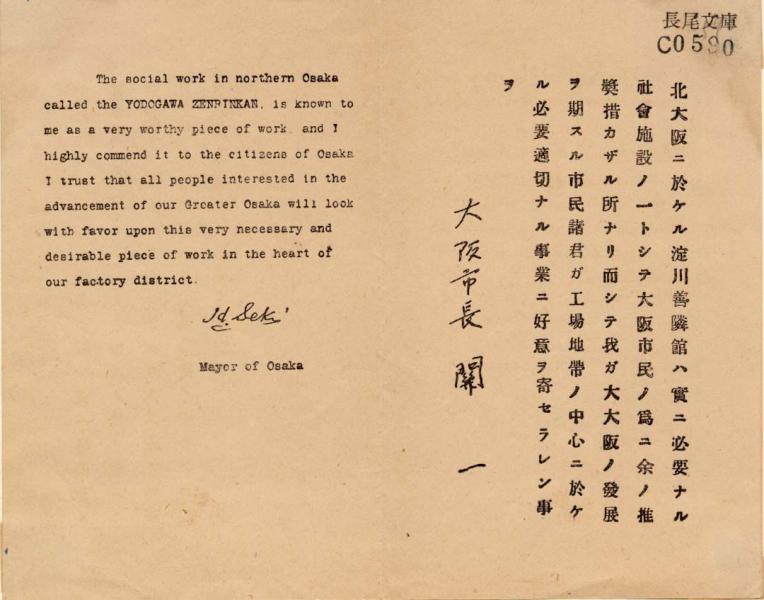 長尾文庫
C0590
The social work in northern Osaka
called the YODOGAWA ZENRINKAN, is known to
me as a very worthy piece of work, and I
highly commend it to the citizens of Osaka
I trust that all people interested in the
advancement of our Greater Osaka will look
with favor upon this very necessary and
desirable piece of work in the heart of
our factory district.
H. Seki
Mayor of Osaka
北大阪ニ於ケル淀川善隣館ハ實ニ必要ナル
社會施設ノ一トシテ大阪市民ノ爲ニ余ノ推
奬措カザル所ナリ而シテ我ガ大大阪ノ發展
ヲ期スル市民諸君ガ工場地帶ノ中心ニ於ケ
ル必要適切ナル事業ニ好意ヲ寄セラレン事
ヲ
大阪市長 關 一